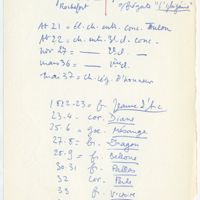 Rochefort
Brigade "l'Iphigénie"
At 21 = él. ch. entr. conc. Toulon
At 22 = ch. entr. 3e cl. conc.
nov 27 = — 2e cl. —
mars 36 = — 1ère cl.
mai 37 = ch. Lég. d'honneur
1822-23 = fr. Jeanne d'Arc
23.4 - cor. Diane
25.6 = goe. Mésange
27.8 = br. Dragon
28.9 = fr. Bellone
30.31 fr. Pallas
32 cor. Perle
33 fr. Victoire